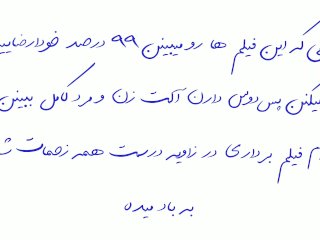 که این فیلم ها رو میبینن ۹۹ درصد خودارضایی
میکنن پس دوس دارن آلت زن و مرد کامل ببینن
فیلم برداری در زاویه درست همه زحمات
به باد میده